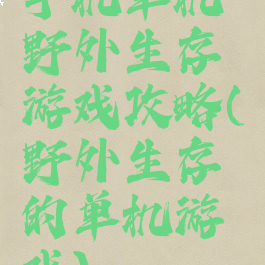 手机单机
野外生存
游戏攻略(
野外生存
的单机游
戏)